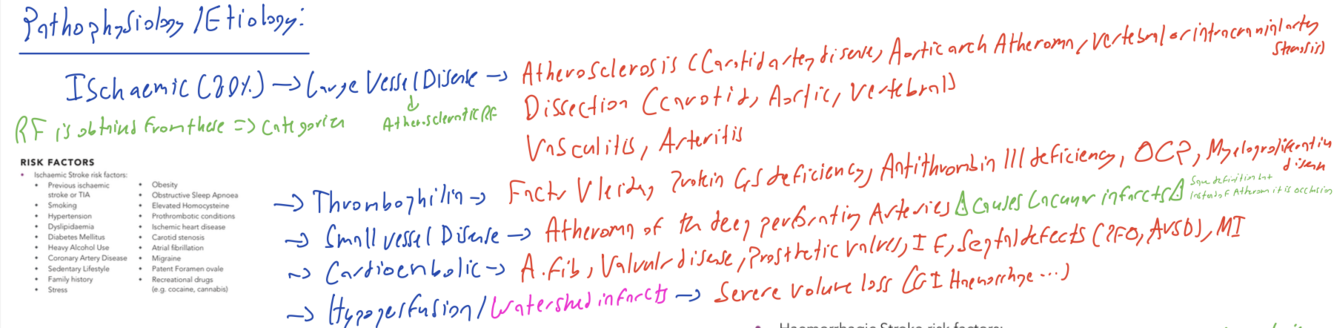 Pathophysiology/Etiology:
Ischaemic (80%) → Large Vessel Disease → Atherosclerosis (Carotid artery disease, Aortic arch Atheroma, Vertebral or intracranial artery Stenosis)
Atherosclerotic RF
Dissection (carotid, Aortic, Vertebral)
Vasculitis, Arteritis
RF is obtained from these => Categories
RISK FACTORS
• Ischaemic Stroke risk factors:
• Previous ischaemic stroke or TIA
• Smoking
• Hypertension
• Dyslipidaemia
• Diabetes Mellitus
• Heavy Alcohol Use
• Coronary Artery Disease
• Sedentary Lifestyle
• Family history
• Stress
• Obesity
• Obstructive Sleep Apnoea
• Elevated Homocysteine
• Prothrombotic conditions
• Ischemic heart disease
• Carotid stenosis
• Atrial fibrillation
• Migraine
• Patent Foramen ovale
• Recreational drugs
(e.g. cocaine, cannabis)
→ Thrombophilia → Factor V Leiden, Protein C/S deficiency, Antithrombin III deficiency, OCP, Myeloproliferative disease
→ Small vessel Disease → Atheroma of the deep perforating Arteries △ Causes Lacunar infarcts △
Same definition but instead of Atheroma it is occlusion
→ Cardioembolic → A.Fib, Valvular disease, Prosthetic valves, IE, Septal defects (PFO, AVSD), MI
→ Hypoperfusion/Watershed infarcts → Severe volume loss (GI Haemorrhage ...)
• Haemorrhagic Stroke risk factors: